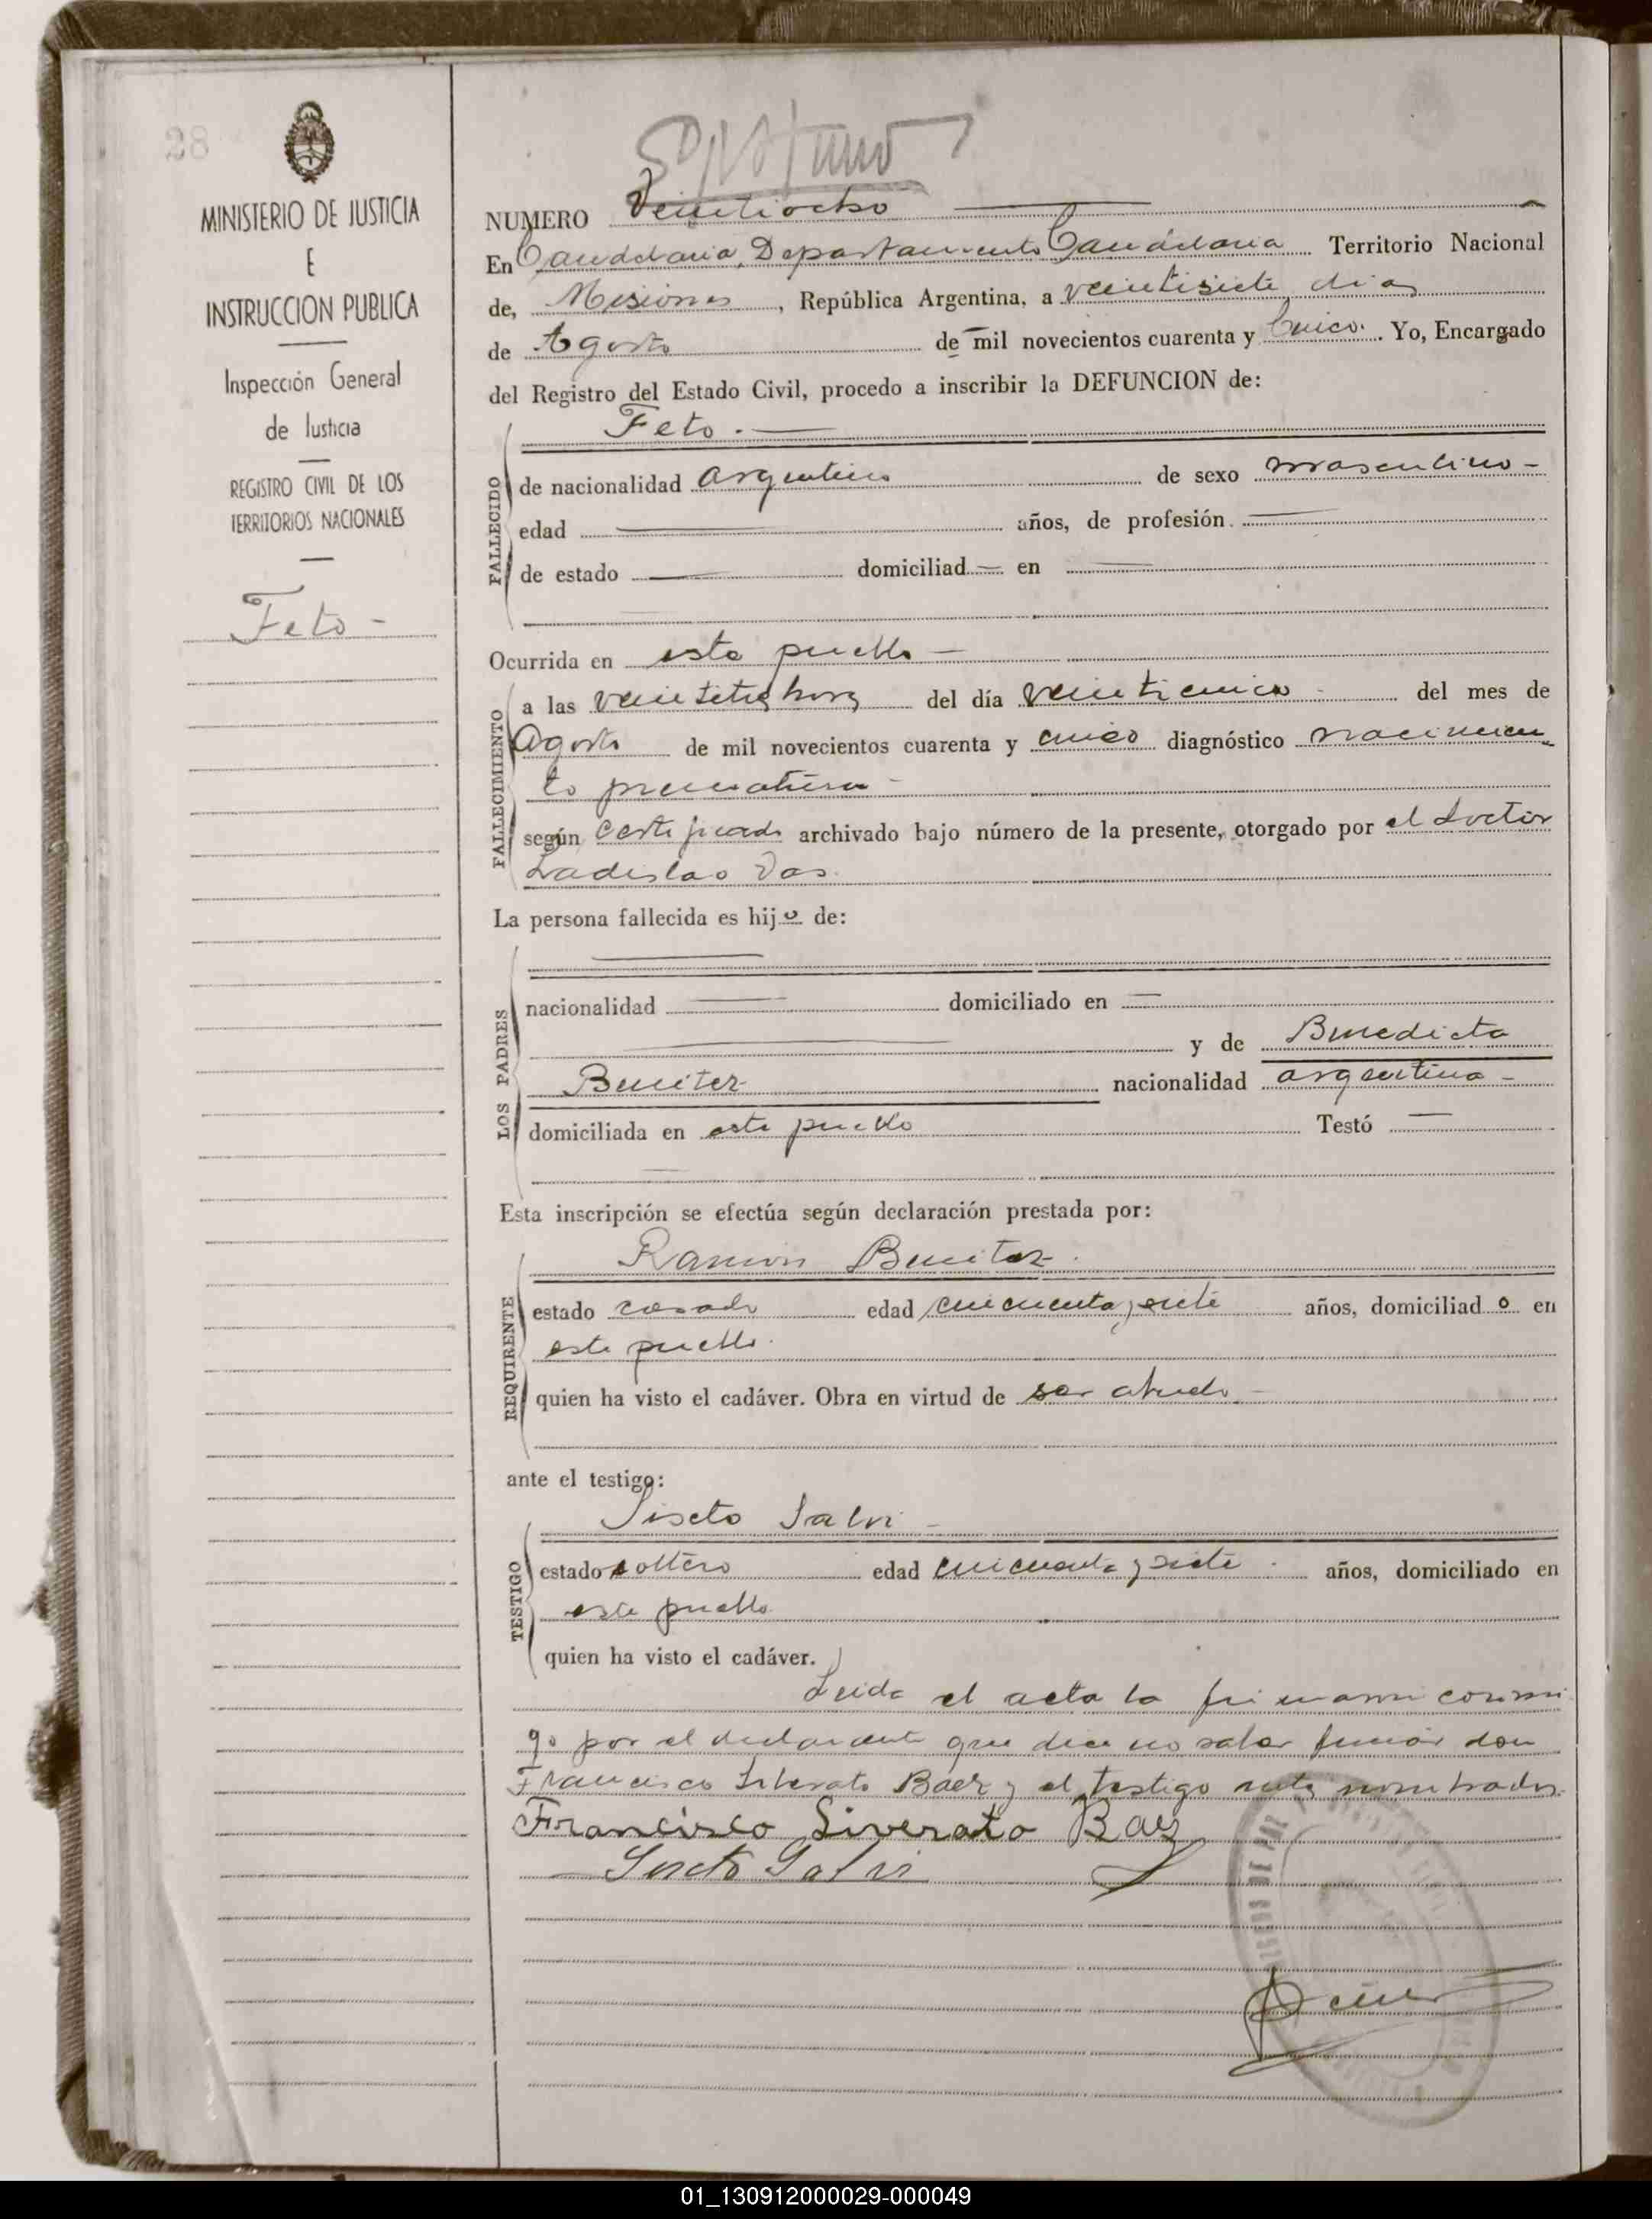 28
MINISTERIO DE JUSTICIA
E
INSTRUCCION PUBLICA
Inspección General
de Justicia
REGISTRO CIVIL DE LOS
TERRITORIOS NACIONALES
Feto -
NUMERO Veintiocho
En Candelaria, Departamento Candelaria Territorio Nacional
de, Misiones, República Argentina, a veintisiete dias
de Agosto de mil novecientos cuarenta y Cinco. Yo, Encargado
del Registro del Estado Civil, procedo a inscribir la DEFUNCION de:
Feto.
FALLECIDO
de nacionalidad argentino de sexo masculino -
edad años, de profesión.
de estado domiciliad en
Ocurrida en este pueblo -
FALLECIMIENTO
a las del día veinticinco del mes de
Agosto de mil novecientos cuarenta y cinco diagnóstico nacimien
to prematuro -
según certificado archivado bajo número de la presente, otorgado por el doctor
Ladislao
La persona fallecida es hijo de:
LOS PADRES
nacionalidad domiciliado en
y de Benedicta
Benitez nacionalidad argentina -
domiciliada en este pueblo Testó
Esta inscripción se efectúa según declaración prestada por:
Ramon Benitez
REQUIRENTE
estado casado edad cincuenta y siete años, domiciliado en
este pueblo.
quien ha visto el cadáver. Obra en virtud de ser abuelo -
ante el testigo:
Sixto Salvi -
TESTIGO
estado soltero edad cincuenta y siete. años, domiciliado en
este pueblo
quien ha visto el cadáver.
Leida el acta la firmaron conmi
go por el declarante que dice no saber firmar don
Francisco Liberato Baez y el testigo antes nombrados.
Francisco Liverato Baez
Sixto Salvi
01_130912000029-000049